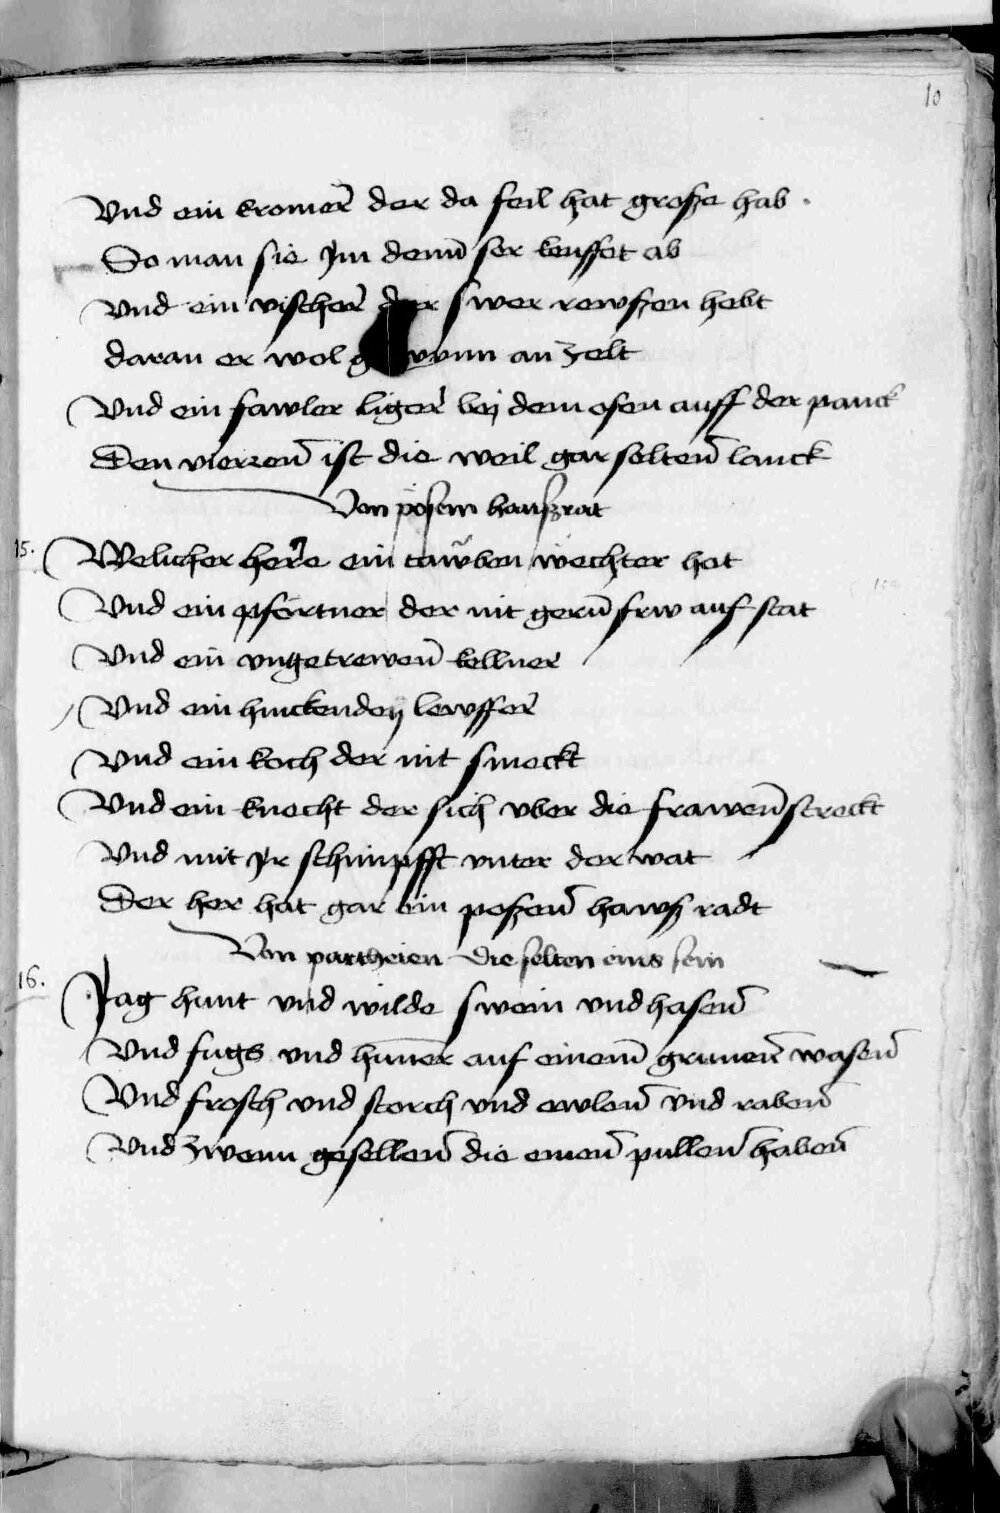 10
Vnd ein kromer̄ der da feil hat große hab .
So man sie Jm denn̄ ser keuffet ab
Vnd ein vischer̄ der swer rewszen hebt
daran er wol an zelt
Vnd ein fawler liger̄ beÿ dem ofen auff der panck
Den vierzen̄ ist die weil gar selten̄ lanck
Von pösem hauszrat
15.
Welicher her̄e ein tawben wechter hat
Vnd ein pfortner der nit gern̄ frw auf stat
Vnd ein vngetrewen̄ kellner
Vnd ein hinckenden lewffer̄
Vnd ein koch der nit smeckt
Vnd ein knecht der sich vber die frawen̄ streckt
Vnd mit Jr schimpfft vnter der wat
Der her hat gar ein poszen̄ hawsz radt
Von partheien die selten eins sein
16.
Jag hunt vnd wilde swein vnd hasen̄
Vnd fugs vnd hun̄er auf einem̄ grunen̄ wasen̄
Vnd frosch vnd storch vnd ewlen̄ vnd raben̄
Vnd zwenn gesellen̄ die einen̄ pullen̄ haben̄